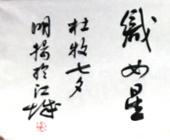 織女星
杜牧七夕
明揚於江城